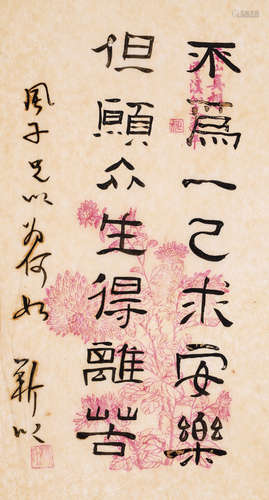 不為一己求安樂
但願众生得離苦
風子兄以為何如
靳以